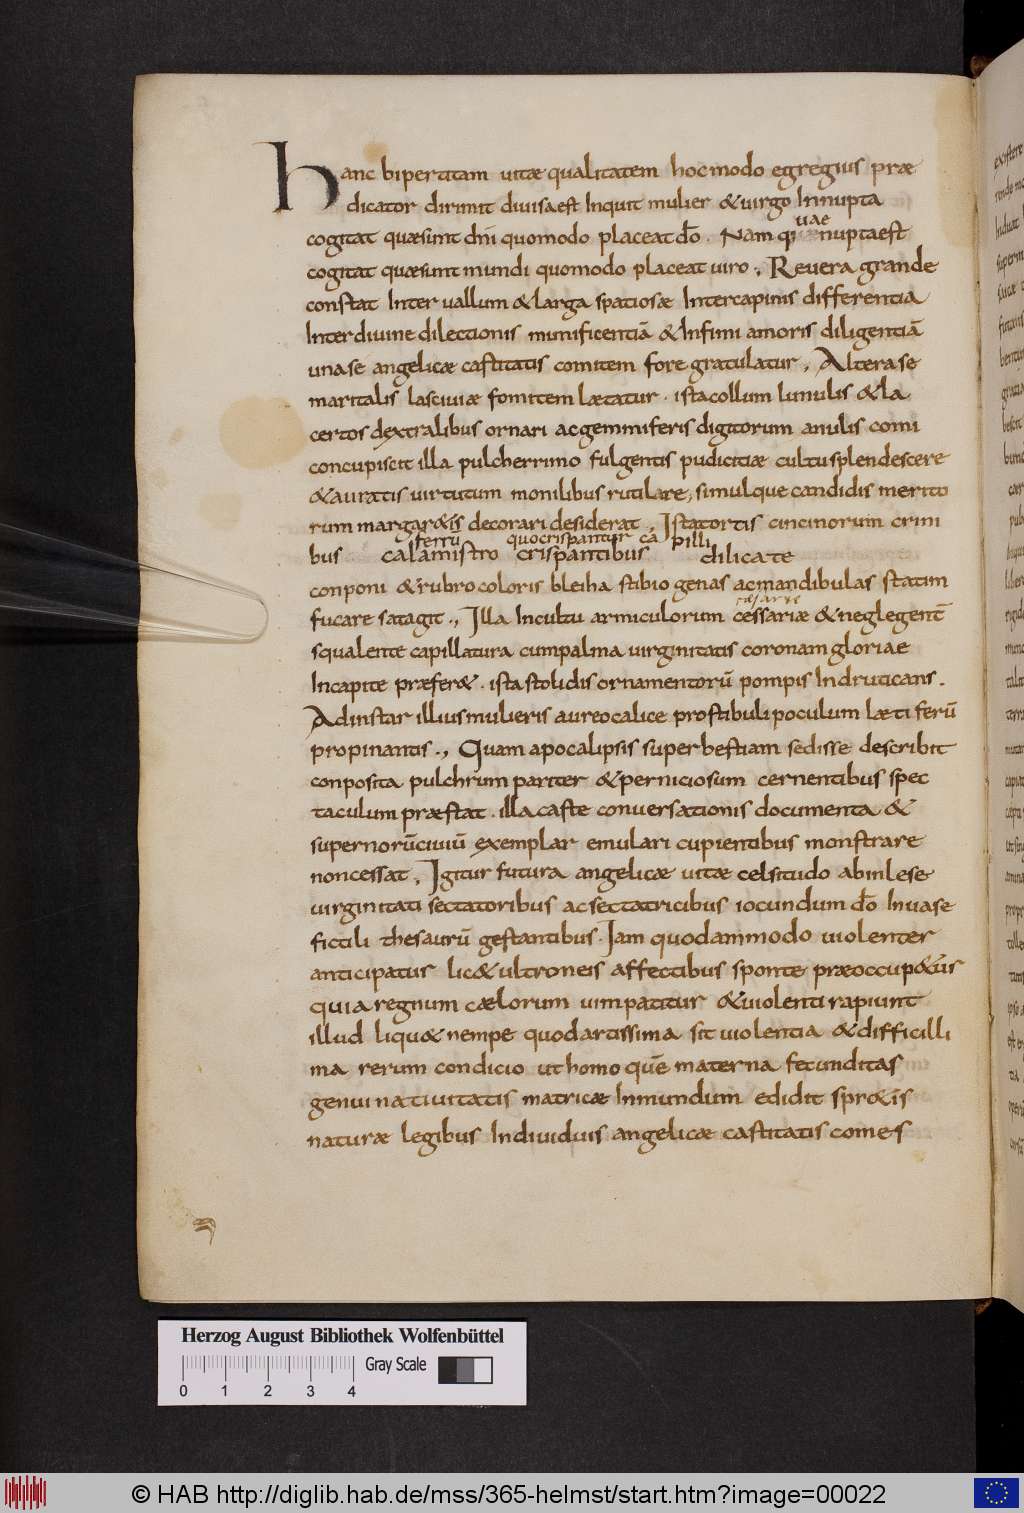 Hanc bipertitam uitæ qualitatem hoc modo egregius præ
dicator dirimit diuisa est Inquit mulier & uirgo Innupta
uae
cogitat quæ sunt dn̄i quomodo placeat dō. Nam q nupta est
cogitat quæ sunt mundi quomodo placeat uiro., Reuera grande
constat Inter uallum & larga spatiosæ Intercapinis differentia
Inter diuine dilectionis munificentiā & Infimi amoris diligentiā
una se angelicæ castitatis comitem fore gratulatur, Altera se
maritalis lasciuiæ fomitem lætatur. ista collum lunulis & la
certos dextralibus ornari ac gemmiferis digitorum anulis comi
concupiscit illa pulcherrimo fulgentis pudicitiæ cultu splendescere
& auratis uirtutum monilibus rutilare, simulque candidis merito
rum margar&is decorari desiderat, Ista tortis cincinorum crini
ferrū quo crispantur ca pilli
bus calamistro crispantibus dilicate
conponi & rubro coloris bleiha stibio genas ac mandibulas statim
fucare satagit., Illa Incultu armiculorum cessariæ & neglegent̄
squalente capillatura cum palma uirginitatis coronam gloriae
Incapite præfer&. ista stolidis ornamentorū pompis Indruticans.
Ad instar illius mulieris aureo calice prostibuli poculum lætiferū
propinantis., Quam apocalipsis super bestiam sedisse describit
conposita pulchrum pariter & perniciosum cernentibus spec
taculum præstat. illa caste conuersationis documenta &
supernorū ciuiū exemplar emulari cupientibus monstrare
non cessat, Igitur futura angelicæ uitæ celsitudo abinlese
uirginitati sectatoribus ac sectatricibus iocundum dō In uase
fictili thesaurū gestantibus. Iam quodammodo uiolenter
anticipatur lic& ultroneis affectibus sponte præoccup&ur
quia regnum cælorum uim patitur & uiolenti rapiunt
illud liqu& nempe quod artissima sit uiolentia & difficilli
ma rerum condicio ut homo quē materna fecunditas
genuina tiuitatis matricæ In mundum edidit spr&is
naturæ legibus Indiuiduis angelicæ castitatis comes
Herzog August Bibliothek Wolfenbüttel
Gray Scale
0 1 2 3 4
© HAB http://diglib.hab.de/mss/365-helmst/start.htm?image=00022